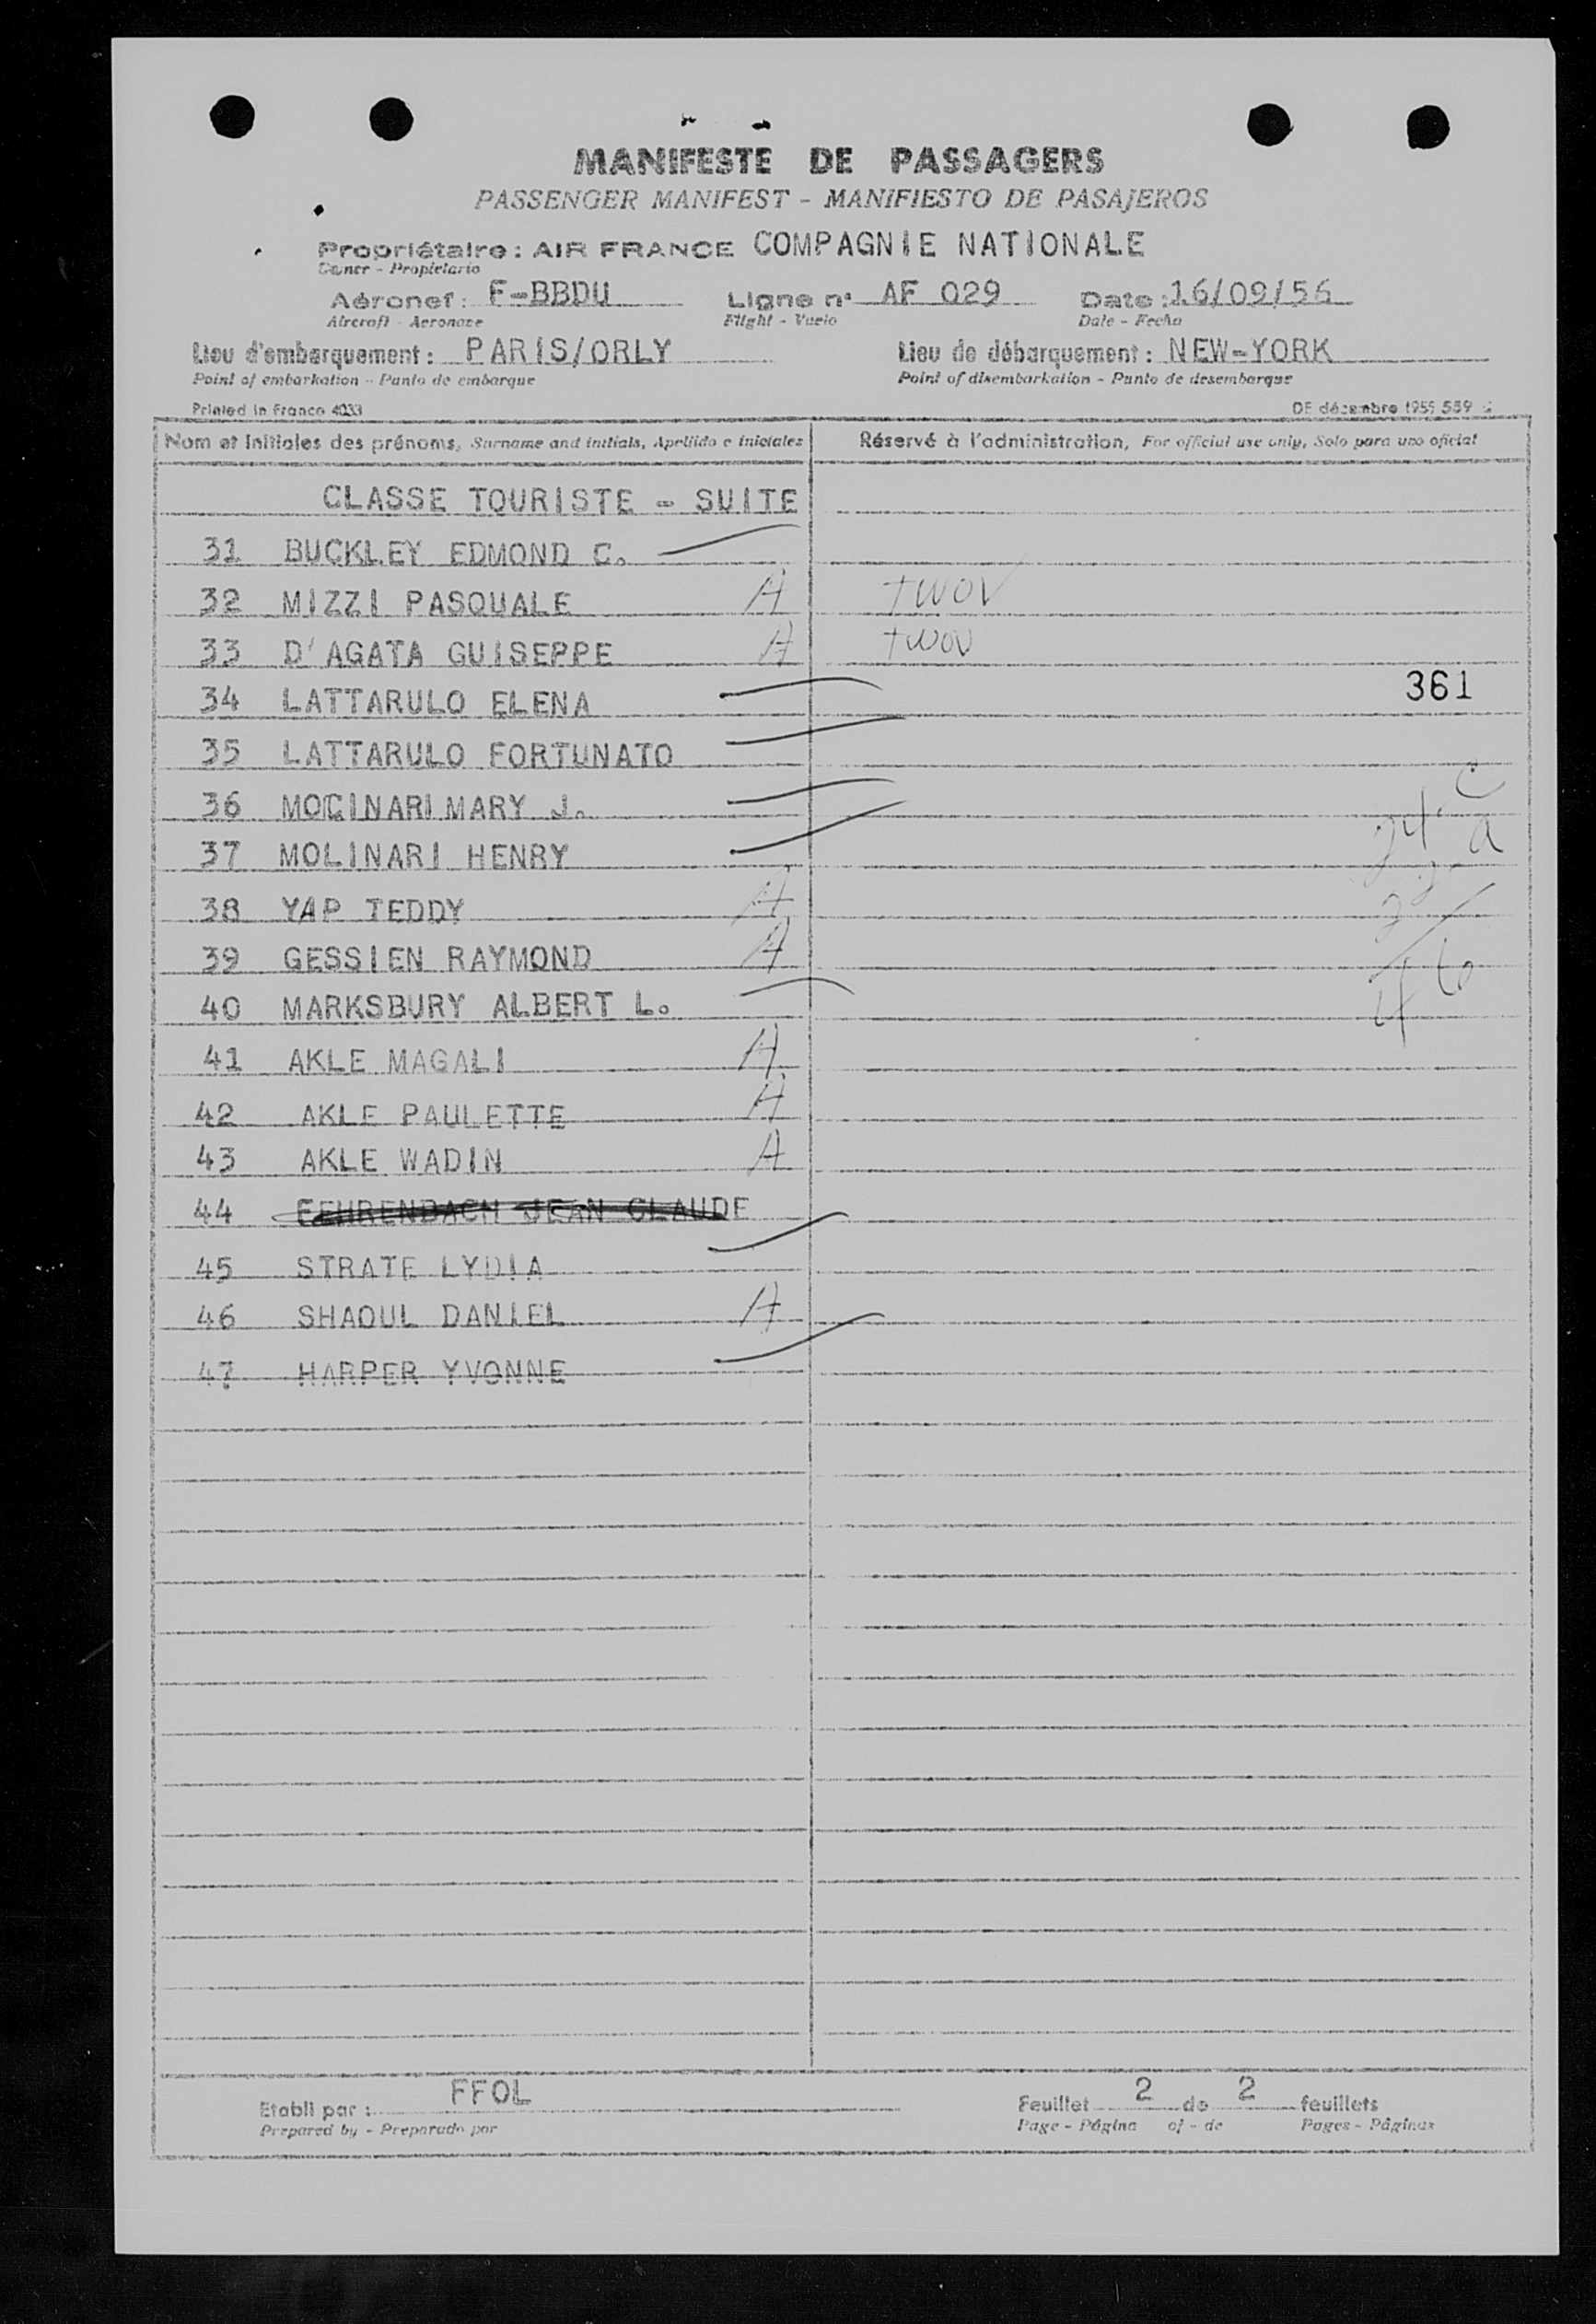 MANIFESTE DE PASSAGERS
PASSENGER MANIFEST - MANIFIESTO DE PASAJEROS
Propriétaire : AIR FRANCE COMPAGNIE NATIONALE
Owner - Propietario
Aéronef : F-BBDU Ligne n° AF 029 Date : 16/09/56
Aircraft - Aeronave Flight - Vuelo Date - Fecha
Lieu d'embarquement : PARIS/ORLY Lieu de débarquement : NEW-YORK
Point of embarkation - Punto de embarque Point of disembarkation - Punto de desembarque
Printed in France 4033 DE décembre 1955 559
Nom et initiales des prénoms, Surname and initials, Apellido e iniciales Réservé à l'administration, For official use only, Solo para uso oficial
CLASSE TOURISTE - SUITE
31 BUCKLEY EDMOND C.
32 MIZZI PASQUALE A TWOV
33 D'AGATA GUISEPPE A TWOV
34 LATTARULO ELENA 361
35 LATTARULO FORTUNATO
36 MOCINARI MARY J. C
37 MOLINARI HENRY 24 a
38 YAP TEDDY A
39 GESSIEN RAYMOND A
40 MARKSBURY ALBERT L.
41 AKLE MAGALI A
42 AKLE PAULETTE A
43 AKLE WADIN A
44 FEHRENBACH JEAN CLAUDE
45 STRATE LYDIA
46 SHAOUL DANIEL A
47 HARPER YVONNE
Etabli par : FFOL Feuillet 2 de 2 feuillets
Prepared by - Preparado por Page - Página of - de Pages - Páginas